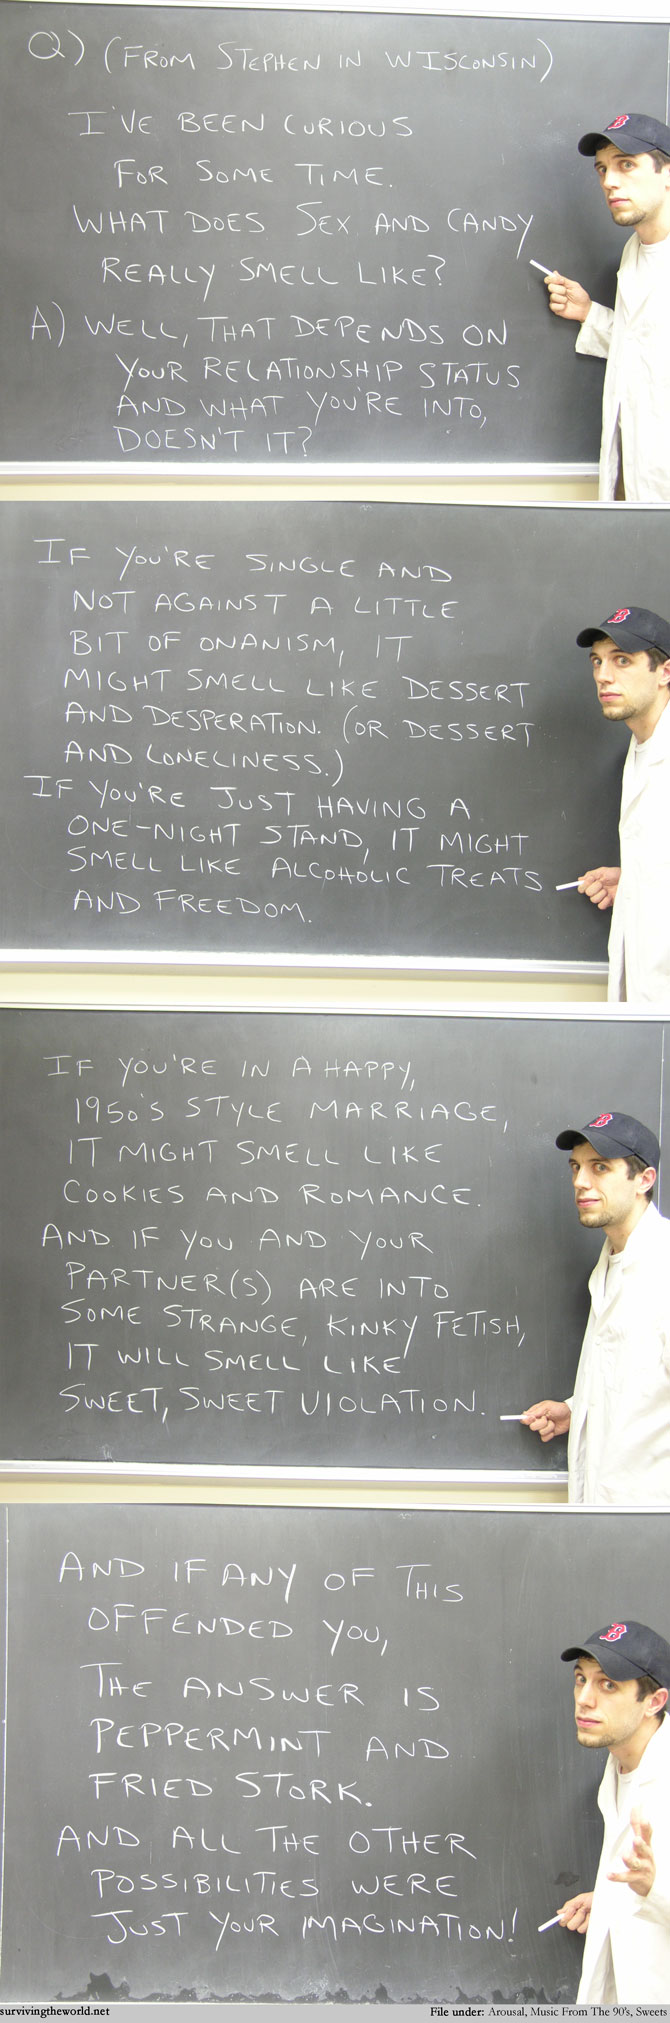 Q) (FROM STEPHEN IN WISCONSIN)
I'VE BEEN CURIOUS
FOR SOME TIME.
WHAT DOES SEX AND CANDY
REALLY SMELL LIKE?
A) WELL, THAT DEPENDS ON
YOUR RELATIONSHIP STATUS
AND WHAT YOU'RE INTO,
DOESN'T IT?
IF YOU'RE SINGLE AND
NOT AGAINST A LITTLE
BIT OF ONANISM, IT
MIGHT SMELL LIKE DESSERT
AND DESPERATION. (OR DESSERT
AND LONELINESS.)
IF YOU'RE JUST HAVING A
ONE-NIGHT STAND, IT MIGHT
SMELL LIKE ALCOHOLIC TREATS
AND FREEDOM.
IF YOU'RE IN A HAPPY,
1950'S STYLE MARRIAGE,
IT MIGHT SMELL LIKE
COOKIES AND ROMANCE.
AND IF YOU AND YOUR
PARTNER(S) ARE INTO
SOME STRANGE, KINKY FETISH,
IT WILL SMELL LIKE
SWEET, SWEET VIOLATION.
AND IF ANY OF THIS
OFFENDED YOU,
THE ANSWER IS
PEPPERMINT AND
FRIED STORK.
AND ALL THE OTHER
POSSIBILITIES WERE
JUST YOUR IMAGINATION!
B
B
B
B
survivingtheworld.net
File under: Arousal, Music From The 90's, Sweets